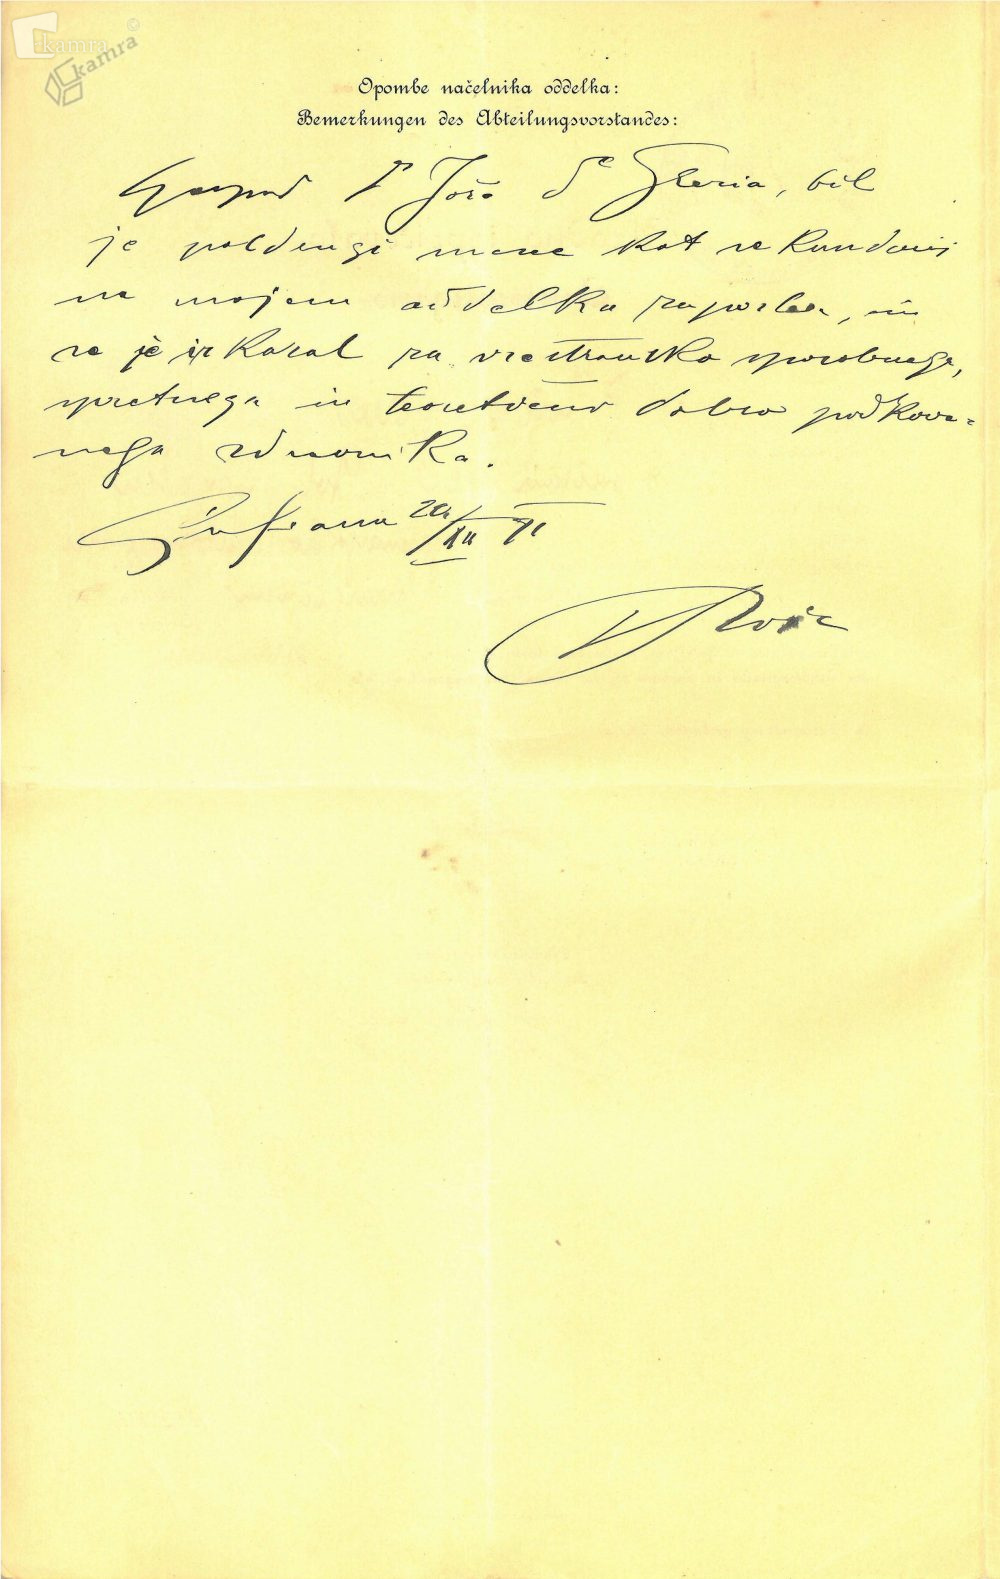 kamra
kamra
Opombe načelnika oddelka:
Bemerkungen des Abteilungsvorstandes:
Gospod Dr Jošo de Gleria, bil
je poldrugi mesec kot sekundarij
na mojem oddelku zaposlen, in
se je izkazal za vsestransko sposobnega,
spretnega in teoretično dobro podkova-
nega zdravnika.
Ljubljana 20/XII